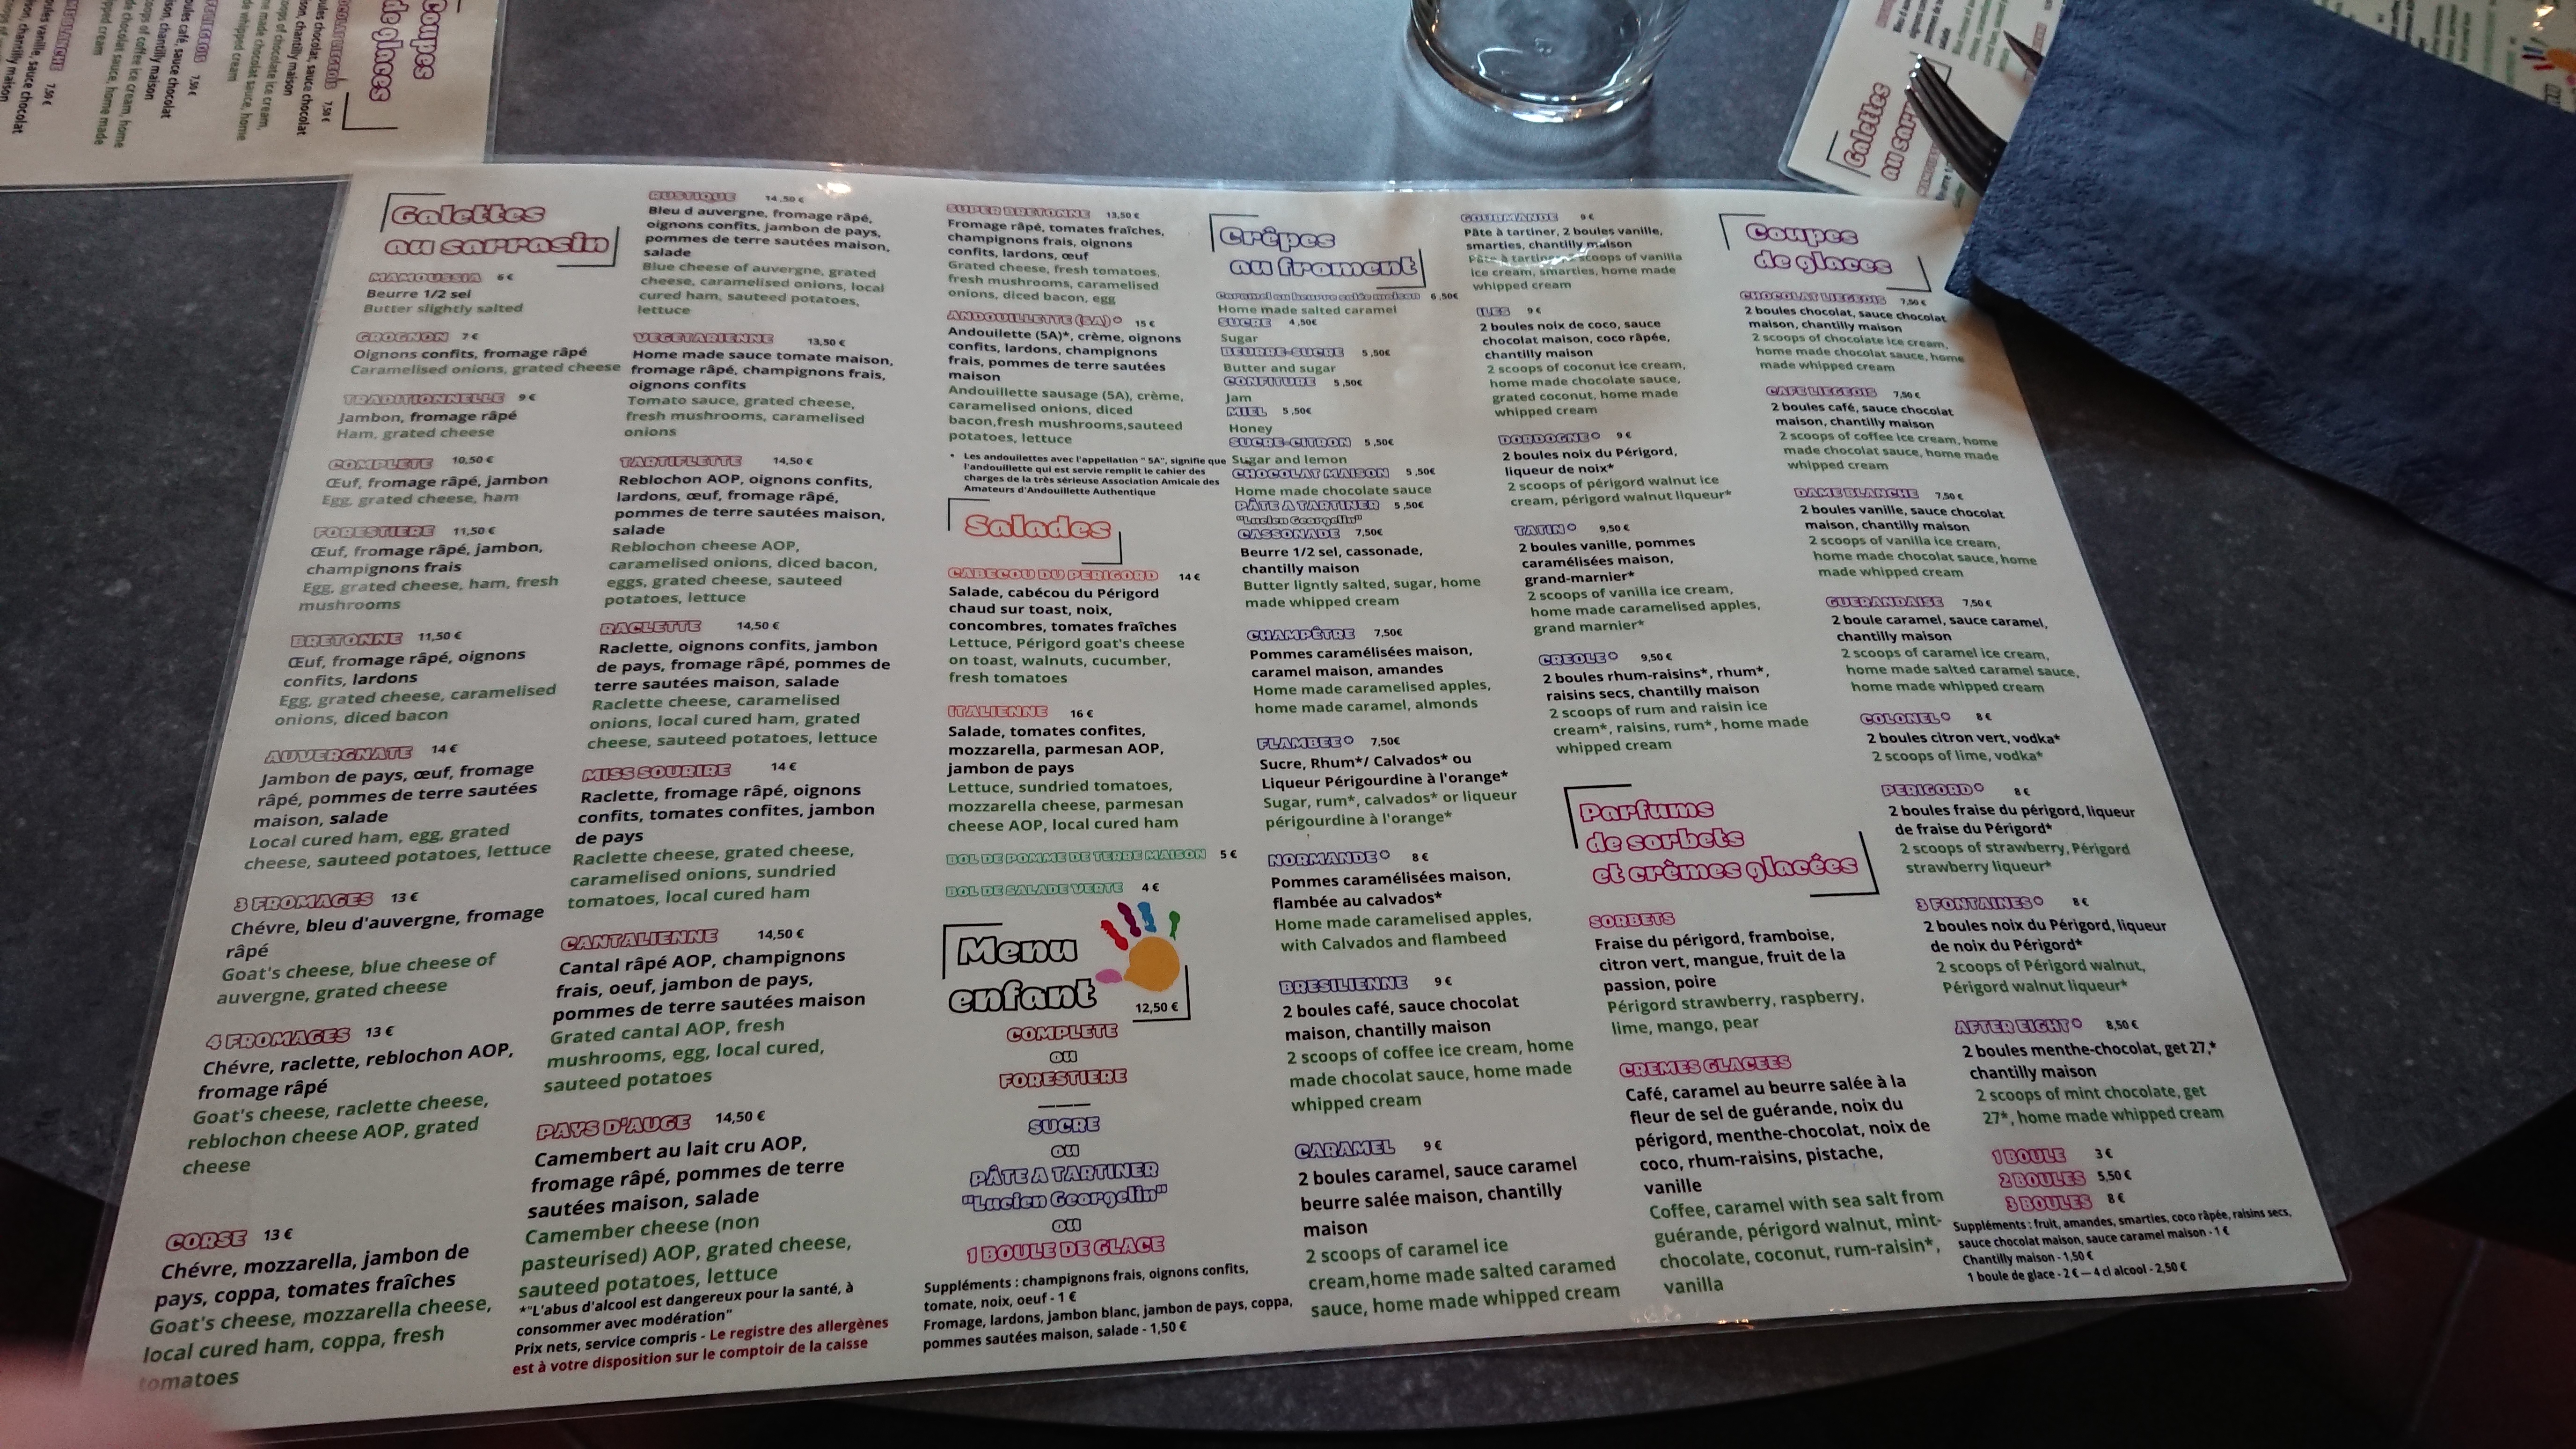 Galettes
au sarrasin
MAMOUSSIA 6 €
Beurre 1/2 sel
Butter slightly salted
GROGNON 7 €
Oignons confits, fromage râpé
Caramelised onions, grated cheese
TRADITIONNELLE 9 €
Jambon, fromage râpé
Ham, grated cheese
COMPLETE 10,50 €
Œuf, fromage râpé, jambon
Egg, grated cheese, ham
FORESTIERE 11,50 €
Œuf, fromage râpé, jambon,
champignons frais
Egg, grated cheese, ham, fresh
mushrooms
BRETONNE 11,50 €
Œuf, fromage râpé, oignons
confits, lardons
Egg, grated cheese, caramelised
onions, diced bacon
AUVERGNATE 14 €
Jambon de pays, œuf, fromage
râpé, pommes de terre sautées
maison, salade
Local cured ham, egg, grated
cheese, sauteed potatoes, lettuce
3 FROMAGES 13 €
Chévre, bleu d'auvergne, fromage
râpé
Goat's cheese, blue cheese of
auvergne, grated cheese
4 FROMAGES 13 €
Chévre, raclette, reblochon AOP,
fromage râpé
Goat's cheese, raclette cheese,
reblochon cheese AOP, grated
cheese
CORSE 13 €
Chévre, mozzarella, jambon de
pays, coppa, tomates fraîches
Goat's cheese, mozzarella cheese,
local cured ham, coppa, fresh
tomatoes
RUSTIQUE 14,50 €
Bleu d auvergne, fromage râpé,
oignons confits, jambon de pays,
pommes de terre sautées maison,
salade
Blue cheese of auvergne, grated
cheese, caramelised onions, local
cured ham, sauteed potatoes,
lettuce
VEGETARIENNE 13,50 €
Home made sauce tomate maison,
fromage râpé, champignons frais,
oignons confits
Tomato sauce, grated cheese,
fresh mushrooms, caramelised
onions
TARTIFLETTE 14,50 €
Reblochon AOP, oignons confits,
lardons, œuf, fromage râpé,
pommes de terre sautées maison,
salade
Reblochon cheese AOP,
caramelised onions, diced bacon,
eggs, grated cheese, sauteed
potatoes, lettuce
RACLETTE 14,50 €
Raclette, oignons confits, jambon
de pays, fromage râpé, pommes de
terre sautées maison, salade
Raclette cheese, caramelised
onions, local cured ham, grated
cheese, sauteed potatoes, lettuce
MISS SOURIRE 14 €
Raclette, fromage râpé, oignons
confits, tomates confites, jambon
de pays
Raclette cheese, grated cheese,
caramelised onions, sundried
tomatoes, local cured ham
CANTALIENNE 14,50 €
Cantal râpé AOP, champignons
frais, oeuf, jambon de pays,
pommes de terre sautées maison
Grated cantal AOP, fresh
mushrooms, egg, local cured,
sauteed potatoes
PAYS D'AUGE 14,50 €
Camembert au lait cru AOP,
fromage râpé, pommes de terre
sautées maison, salade
Camember cheese (non
pasteurised) AOP, grated cheese,
sauteed potatoes, lettuce
*"L'abus d'alcool est dangereux pour la santé, à
consommer avec modération"
Prix nets, service compris - Le registre des allergènes
est à votre disposition sur le comptoir de la caisse
SUPER BRETONNE 13,50 €
Fromage râpé, tomates fraîches,
champignons frais, oignons
confits, lardons, œuf
Grated cheese, fresh tomatoes,
fresh mushrooms, caramelised
onions, diced bacon, egg
ANDOUILLETTE (5A)* 15 €
Andouilette (5A)*, crème, oignons
confits, lardons, champignons
frais, pommes de terre sautées
maison
Andouillette sausage (5A), crème,
caramelised onions, diced
bacon,fresh mushrooms,sauteed
potatoes, lettuce
* Les andouillettes avec l'appellation " 5A", signifie que
l'andouillette qui est servie remplit le cahier des
charges de la très sérieuse Association Amicale des
Amateurs d'Andouillette Authentique
Salades
CABECOU DU PERIGORD 14 €
Salade, cabécou du Périgord
chaud sur toast, noix,
concombres, tomates fraîches
Lettuce, Périgord goat's cheese
on toast, walnuts, cucumber,
fresh tomatoes
ITALIENNE 16 €
Salade, tomates confites,
mozzarella, parmesan AOP,
jambon de pays
Lettuce, sundried tomatoes,
mozzarella cheese, parmesan
cheese AOP, local cured ham
BOL DE POMME DE TERRE MAISON 5 €
BOL DE SALADE VERTE 4 €
Menu
enfant
12,50 €
COMPLETE
ou
FORESTIERE
SUCRE
ou
PÂTE A TARTINER
"Lucien Georgelin"
ou
1 BOULE DE GLACE
Suppléments : champignons frais, oignons confits,
tomate, noix, oeuf - 1 €
Fromage, lardons, jambon blanc, jambon de pays, coppa,
pommes sautées maison, salade - 1,50 €
Crêpes
au froment
Caramel au beurre salée maison 6 ,50€
Home made salted caramel
SUCRE 4 ,50€
Sugar
BEURRE-SUCRE 5 ,50€
Butter and sugar
CONFITURE 5 ,50€
Jam
MIEL 5 ,50€
Honey
SUCRE-CITRON 5 ,50€
Sugar and lemon
CHOCOLAT MAISON 5 ,50€
Home made chocolate sauce
PÂTE A TARTINER 5 ,50€
"Lucien Georgelin"
CASSONADE 7,50€
Beurre 1/2 sel, cassonade,
chantilly maison
Butter ligntly salted, sugar, home
made whipped cream
CHAMPÊTRE 7,50€
Pommes caramélisées maison,
caramel maison, amandes
Home made caramelised apples,
home made caramel, almonds
FLAMBEE* 7,50€
Sucre, Rhum*/ Calvados* ou
Liqueur Périgourdine à l'orange*
Sugar, rum*, calvados* or liqueur
périgourdine à l'orange*
NORMANDE* 8 €
Pommes caramélisées maison,
flambée au calvados*
Home made caramelised apples,
with Calvados and flambeed
BRESILIENNE 9 €
2 boules café, sauce chocolat
maison, chantilly maison
2 scoops of coffee ice cream, home
made chocolat sauce, home made
whipped cream
CARAMEL 9 €
2 boules caramel, sauce caramel
beurre salée maison, chantilly
maison
2 scoops of caramel ice
cream,home made salted caramed
sauce, home made whipped cream
GOURMANDE 9 €
Pâte à tartiner, 2 boules vanille,
smarties, chantilly maison
Pâte à tartiner, scoops of vanilla
ice cream, smarties, home made
whipped cream
ILES 9 €
2 boules noix de coco, sauce
chocolat maison, coco râpée,
chantilly maison
2 scoops of coconut ice cream,
home made chocolate sauce,
grated coconut, home made
whipped cream
DORDOGNE* 9 €
2 boules noix du Périgord,
liqueur de noix*
2 scoops of périgord walnut ice
cream, périgord walnut liqueur*
TATIN* 9,50 €
2 boules vanille, pommes
caramélisées maison,
grand-marnier*
2 scoops of vanilla ice cream,
home made caramelised apples,
grand marnier*
CREOLE* 9,50 €
2 boules rhum-raisins*, rhum*,
raisins secs, chantilly maison
2 scoops of rum and raisin ice
cream*, raisins, rum*, home made
whipped cream
Parfums
de sorbets
et crèmes glacées
SORBETS
Fraise du périgord, framboise,
citron vert, mangue, fruit de la
passion, poire
Périgord strawberry, raspberry,
lime, mango, pear
CREMES GLACEES
Café, caramel au beurre salée à la
fleur de sel de guérande, noix du
périgord, menthe-chocolat, noix de
coco, rhum-raisins, pistache,
vanille
Coffee, caramel with sea salt from
guérande, périgord walnut, mint-
chocolate, coconut, rum-raisin*,
vanilla
Coupes
de glaces
CHOCOLAT LIEGEOIS 7,50 €
2 boules chocolat, sauce chocolat
maison, chantilly maison
2 scoops of chocolate ice cream,
home made chocolat sauce, home
made whipped cream
CAFE LIEGEOIS 7,50 €
2 boules café, sauce chocolat
maison, chantilly maison
2 scoops of coffee ice cream, home
made chocolat sauce, home made
whipped cream
DAME BLANCHE 7,50 €
2 boules vanille, sauce chocolat
maison, chantilly maison
2 scoops of vanilla ice cream,
home made chocolat sauce, home
made whipped cream
GUERANDAISE 7,50 €
2 boule caramel, sauce caramel,
chantilly maison
2 scoops of caramel ice cream,
home made salted caramel sauce,
home made whipped cream
COLONEL* 8 €
2 boules citron vert, vodka*
2 scoops of lime, vodka*
PERIGORD* 8 €
2 boules fraise du périgord, liqueur
de fraise du Périgord*
2 scoops of strawberry, Périgord
strawberry liqueur*
3 FONTAINES* 8 €
2 boules noix du Périgord, liqueur
de noix du Périgord*
2 scoops of Périgord walnut,
Périgord walnut liqueur*
AFTER EIGHT* 8,50 €
2 boules menthe-chocolat, get 27,*
chantilly maison
2 scoops of mint chocolate, get
27*, home made whipped cream
1 BOULE 3 €
2 BOULES 5,50 €
3 BOULES 8 €
Suppléments : fruit, amandes, smarties, coco râpée, raisins secs,
sauce chocolat maison, sauce caramel maison - 1 €
Chantilly maison - 1,50 €
1 boule de glace - 2 € — 4 cl alcool - 2,50 €
Coupes
de glaces
Galettes